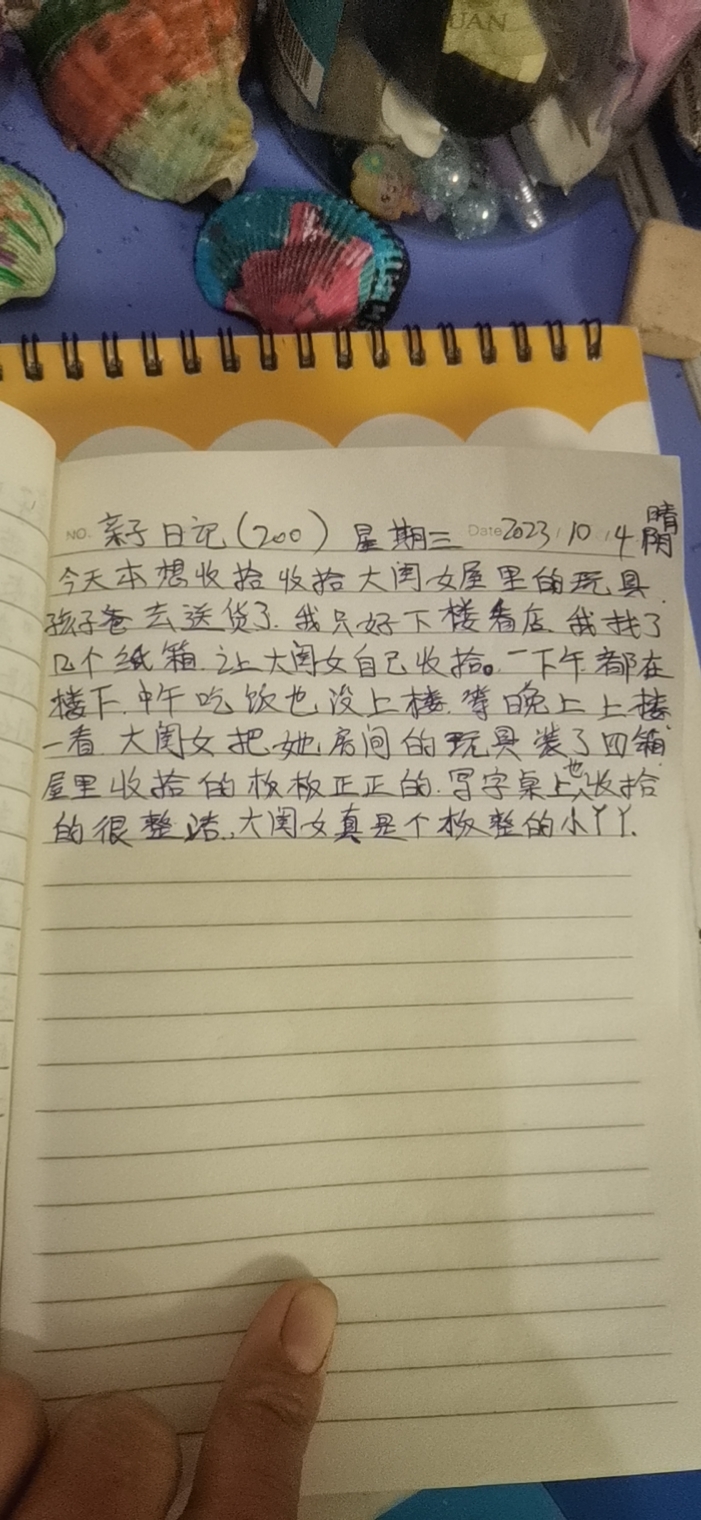 UAN
NO. 亲子日记(200) 星期三 Date 2023 10 4 晴阴
今天本想收拾收拾大闺女屋里的玩具.
孩子爸去送货了.我只好下楼看店.我找了
几个纸箱.让大闺女自己收拾。一下午都在
楼下.中午吃饭也没上楼.等晚上上楼
一看.大闺女把她房间的玩具装了四箱.
屋里收拾的板板正正的.写字桌上也收拾
的很整洁.大闺女真是个板整的小丫丫.